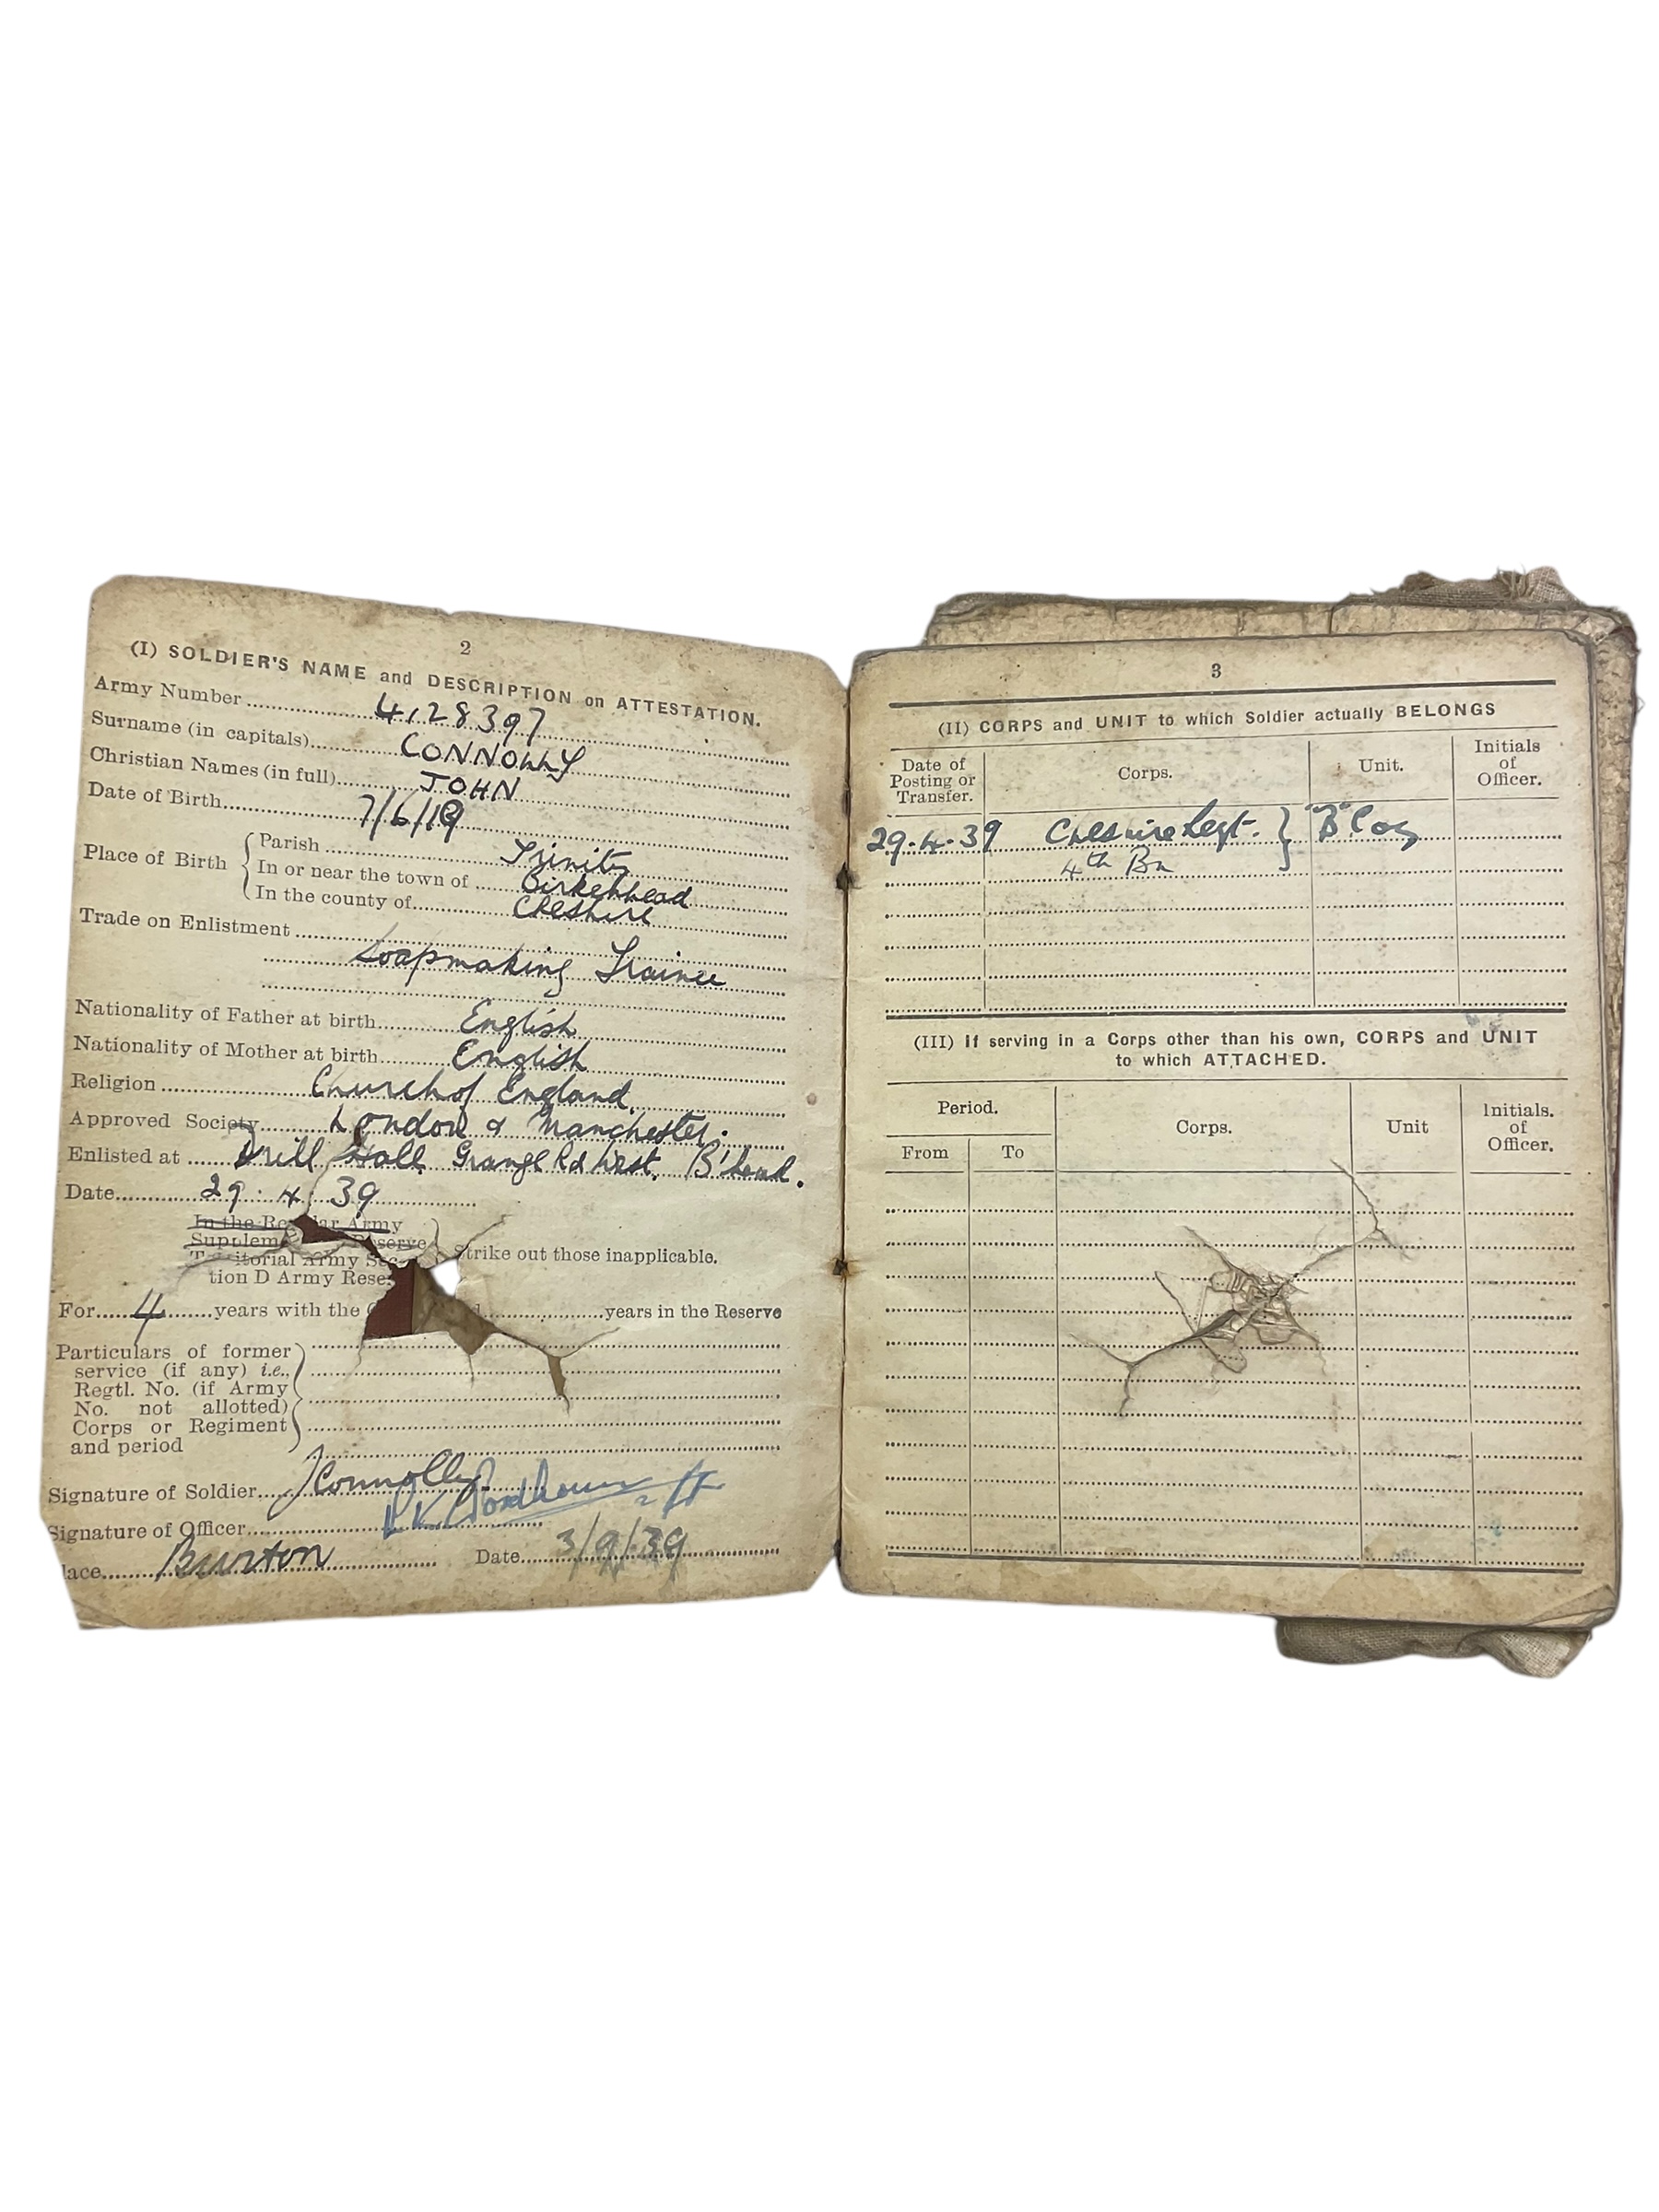 2
(I) SOLDIER'S NAME and DESCRIPTION on ATTESTATION.
Army Number 4128397
Surname (in capitals) CONNOLLY
Christian Names (in full) JOHN
Date of Birth 7/6/19
Place of Birth { Parish Trinity
In or near the town of Birkenhead
In the county of Cheshire
Trade on Enlistment
Soapmaking Trainee
Nationality of Father at birth English
Nationality of Mother at birth English
Religion Church of England.
Approved Society London & Manchester.
Enlisted at Drill Hall Grange Rd West. B'head.
Date 29.4.39
In the Regular Army
Reserve
Territorial Army Sec-
tion D Army Rese
} Strike out those inapplicable.
For 4 years with the years in the Reserve
Particulars of former
service (if any) i.e.,
Regtl. No. (if Army
No. not allotted)
Corps or Regiment
and period
Signature of Soldier JConnolly
Signature of Officer
lace Burton Date 3/9/39
3
(II) CORPS and UNIT to which Soldier actually BELONGS
Date of Posting or Transfer. Corps. Unit. Initials of Officer.
29.4.39 Cheshire Regt. } "B" Coy
4th Bn
(III) If serving in a Corps other than his own, CORPS and UNIT
to which ATTACHED.
Period. Corps. Unit Initials. of Officer.
From To